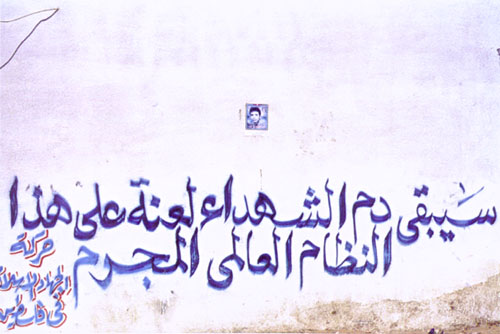 سيبقى دم الشهداء لعنة على هذا
النظام العالمي المجرم
حركة
الجهاد الاسلامي
في فلسطين